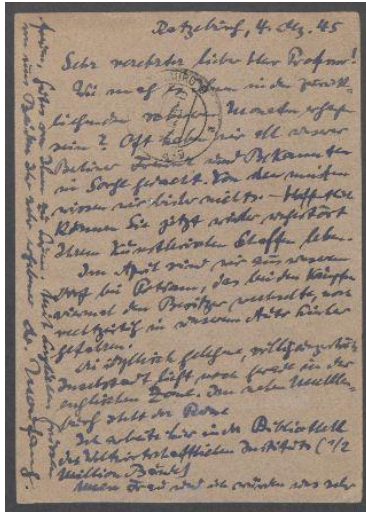 Ratzeburg, 4. Dez. 45
Sehr verehrter lieber Herr Professor!
Wie mag es Ihnen in den zurück-
liegenden Monaten ergangen
sein? Oft haben wir all unserer
Berliner Freunde und Bekannten
in Sorge gedacht. Von den meisten
wissen wir leider nichts. – Hoffentlich
können Sie jetzt wieder ungestört
Ihrem künstlerischen Schaffen leben.
Im April sind wir aus unserem
Dorf bei Potsdam, das bei den Kämpfen
viermal den Besitzer wechselte, noch
rechtzeitig in unserem Auto hierher
gefahren.
Die idyllisch gelegene, völlig
Inselstadt liegt noch gerade in der
englischen Zone. Im nahen Mecklen-
burg steht der Russe
Ich arbeite hier in der Bibliothek
des Weltwirtschaftlichen Instituts (1/2
Million Bände)
Meine Frau und ich würden uns sehr
freuen, Gutes von Ihnen zu hören. Mit
von uns Beiden Ihr sehr ergebener